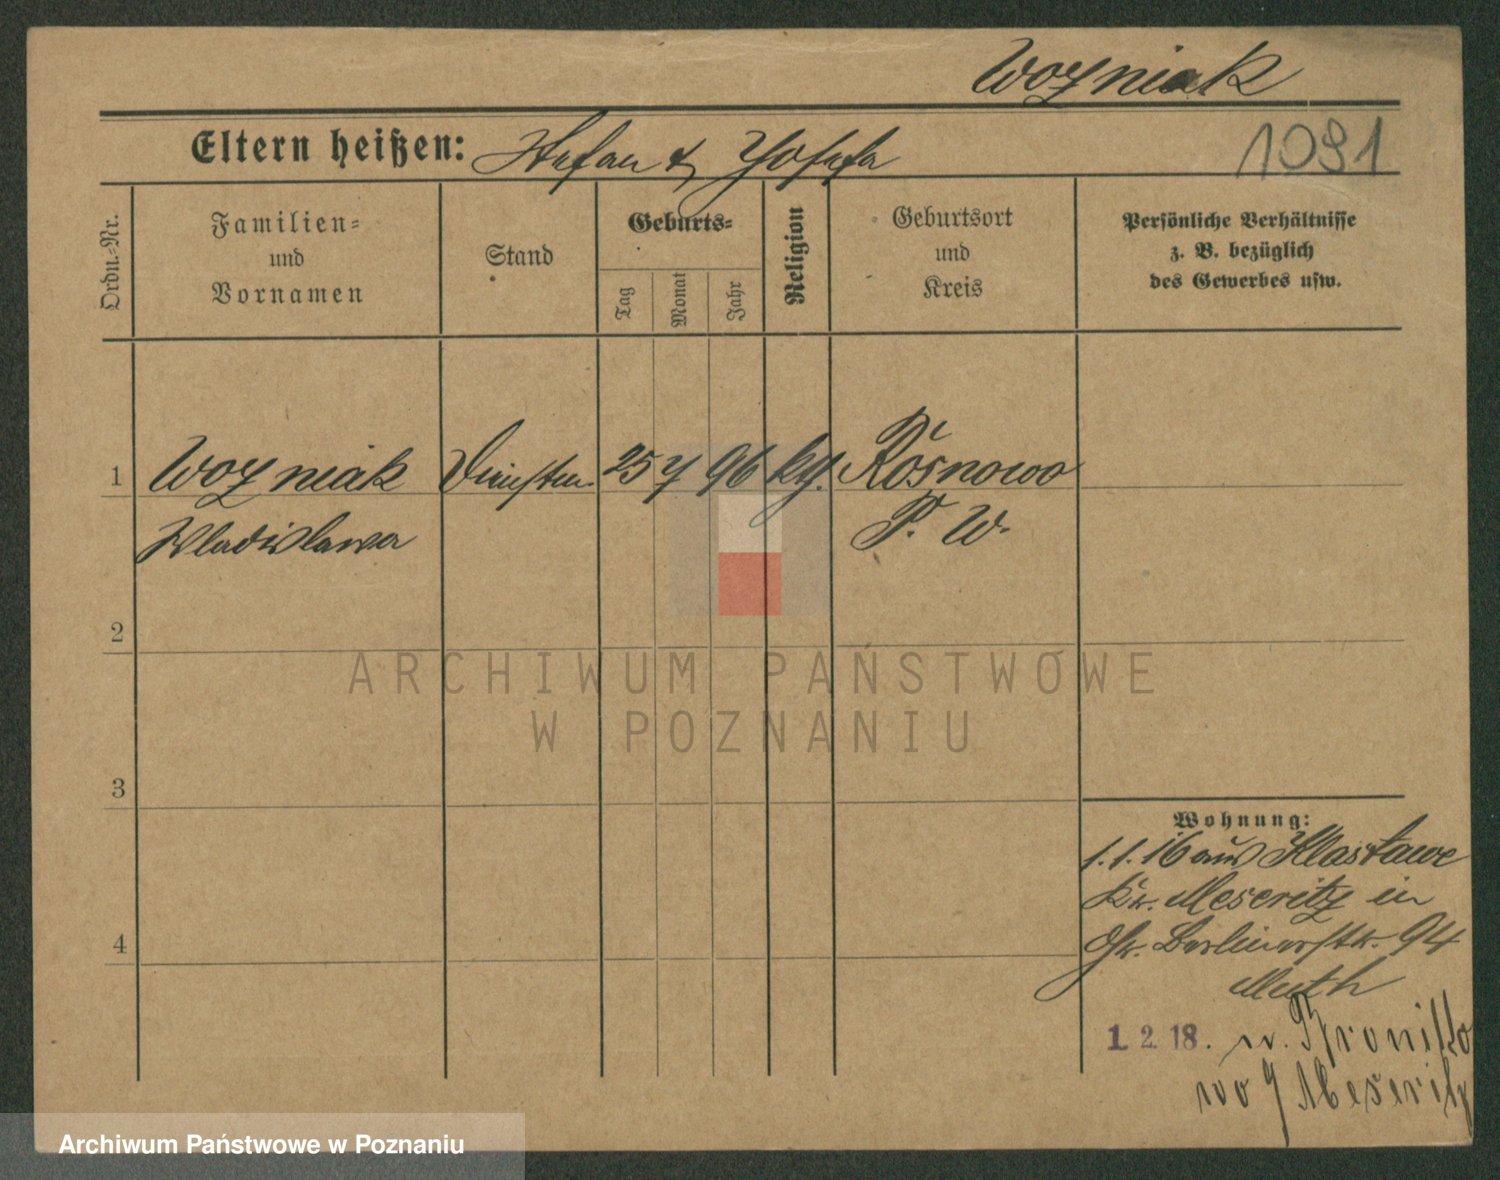 Wozniak
Eltern heißen: Stefan & Josefa
1091
Ordn.-Nr.
Familien- und Vornamen
Stand
Geburts-
Tag
Monat
Jahr
Religion
Geburtsort und Kreis
Persönliche Verhältnisse
z. B. bezüglich
des Gewerbes usw.
1 Wozniak 25 7 96 Rosnowo
Wladislawa P. W.
2
3
4
Wohnung:
1. 1. 16 aus Klastawe
Kr. Meseritz in
Berlinerstr. 94
Muth
1. 2. 18. n.
Meseritz
ARCHIWUM PAŃSTWOWE
W POZNANIU
Archiwum Państwowe w Poznaniu